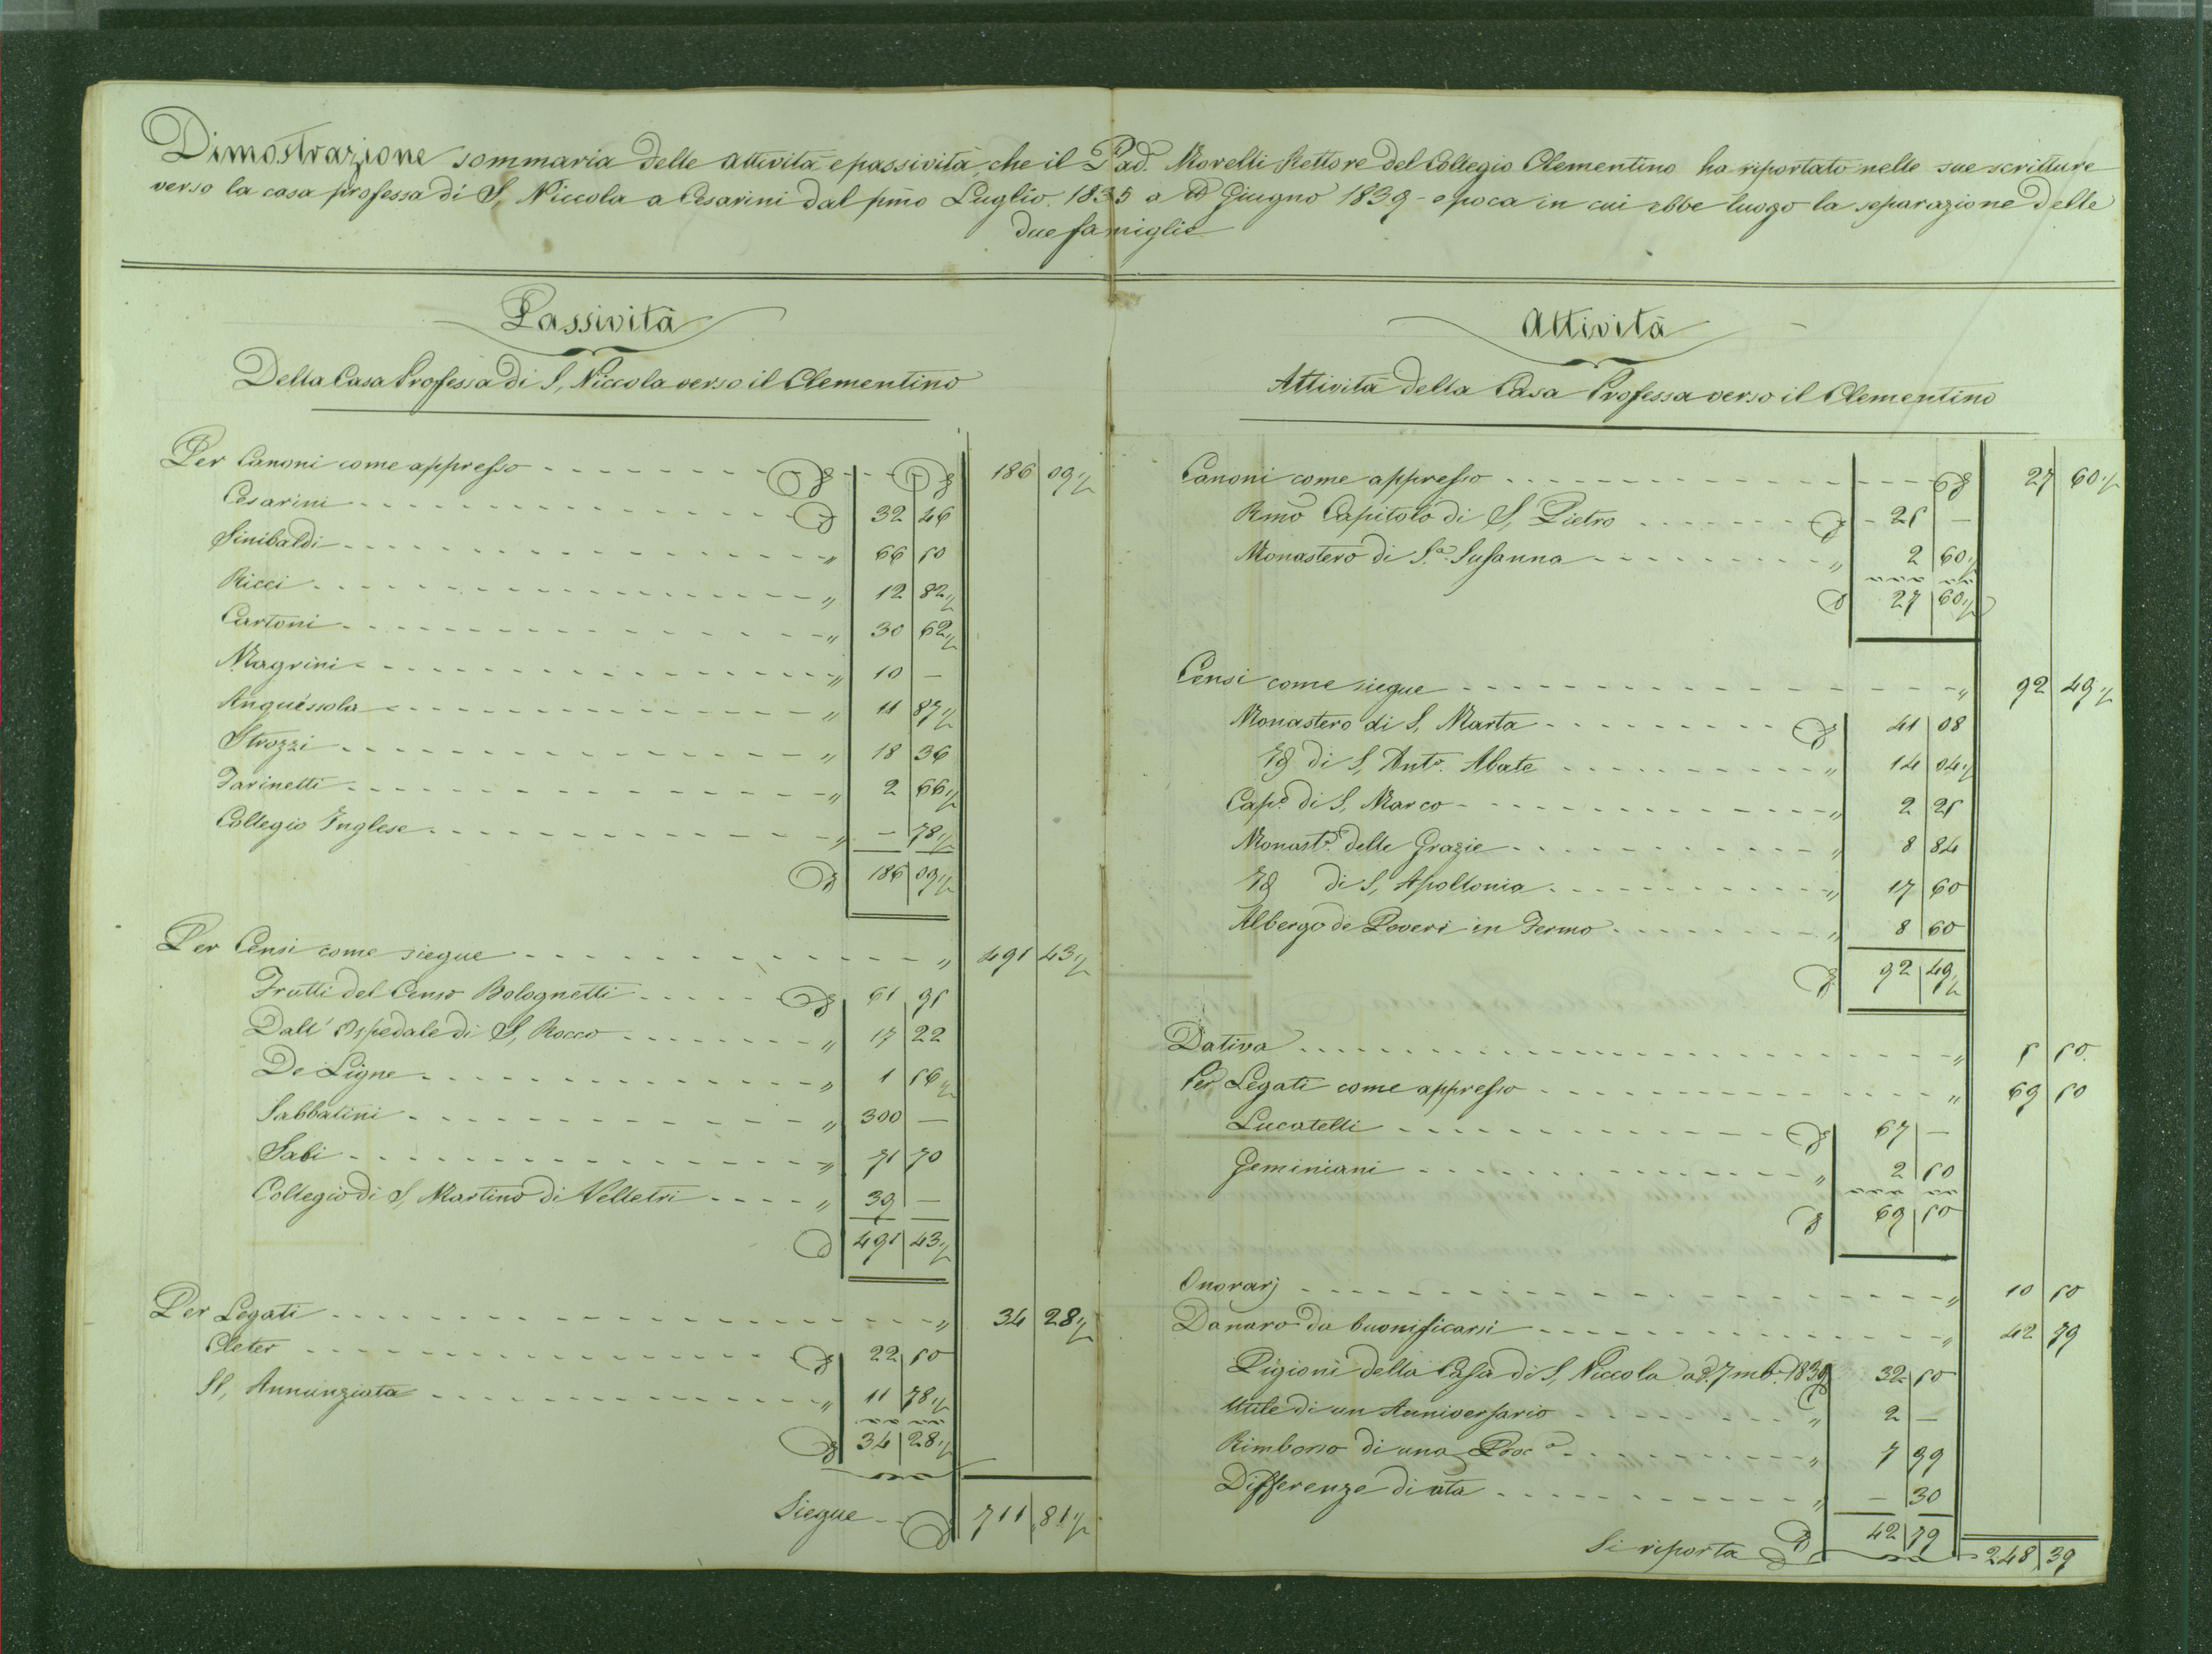 Dimostrazione sommaria delle attività e passività, che il Pad. Morelli Rettore del Collegio Clementino ha riportato nelle sue scritture
verso la casa professa di S. Niccola a Cesarini dal pmo Luglio 1835 a Giugno 1839 - epoca in cui ebbe luogo la separazione delle
due famiglie
Passività
Della Casa Professa di S. Niccola verso il Clementino
Per Canoni come appresso 186 09 ½
Cesarini 32 46
Sinibaldi " 66 50
Ricci " 12 82 ½
Cartoni " 30 62 ½
Magrini " 10 —
Anguissola " 11 87 ½
Strozzi " 18 36
Farinetti " 2 66 ½
Collegio Inglese " — 78 ½
186 09 ½
Per Censi come siegue " 491 43 ½
Frutti del Censo Bolognetti 61 95
Dall' Ospedale di S. Rocco " 17 22
De Ligne " 1 56 ½
Sabbatini " 300 —
Sabi " 71 70
Collegio di S. Martino di Velletri " 39 —
491 43 ½
Per Legati " 34 28 ½
Cleter 22 50
SS. Annunziata " 11 78 ½
34 28 ½
Siegue 711 81 ½
Attività
Attività della Casa Professa verso il Clementino
Canoni come appresso 27 60 ½
Rmo Capitolo di S. Pietro 25 —
Monastero di S.a Susanna " 2 60 ½
27 60 ½
Censi come siegue " 92 49 ½
Monastero di S. Marta 41 08
Id di S. Anto. Abate " 14 04 ½
Capo. di S. Marco " 2 25
Monasto. delle Grazie " 8 84
Id di S. Apollonia " 17 60
Albergo de Poveri in Fermo " 8 60
92 49 ½
Dativa " 5 50
Per Legati come appresso " 69 50
Lucatelli 67 —
Geminiani " 2 50
69 50
Onorarj " 10 50
Danaro da buonificarsi " 42 79
Pigioni della Casa di S. Niccola a 7mb. 1839 32 50
Utile di un Anniversario " 2 —
Rimborso di una " 7 99
Differenze di " — 30
42 79
Si riporta 248 39